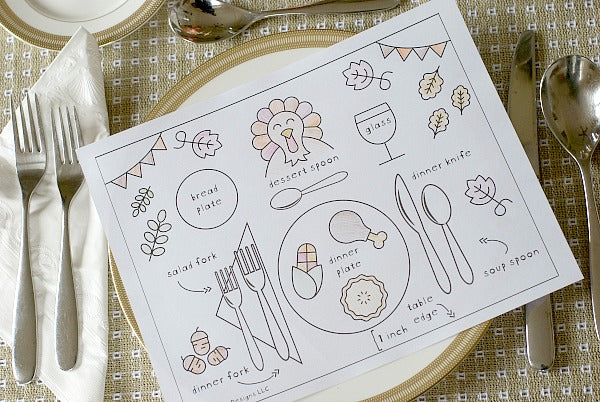 glass
dessert spoon
dinner knife
bread
plate
salad fork
dinner
plate
soup spoon
table
1 inch edge
dinner fork
Designs LLC